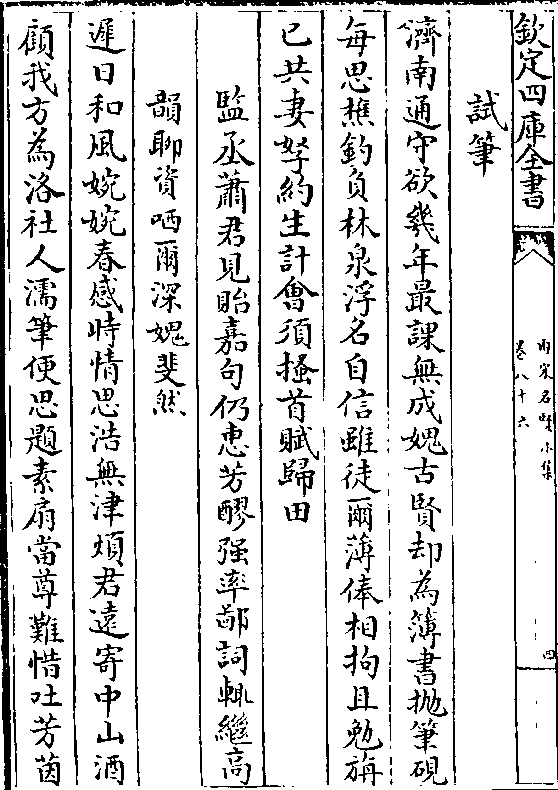 欽定四庫全書
兩宋名賢小集
卷八十六
四
試筆
濟南通守欲幾年最課無成媿古賢却為簿書抛筆硯
每思樵釣負林泉浮名自信雖徒爾薄俸相拘且勉旃
已共妻孥約生計會須搔首賦歸田
監丞蕭君見貽嘉句仍恵芳醪强率鄙詞輒繼高
韻聊資哂爾深媿斐然
遲日和風婉婉春感時情思浩無津煩君逺寄中山酒
顧我方為洛社人濡筆便思題素扇當尊難惜吐芳茵